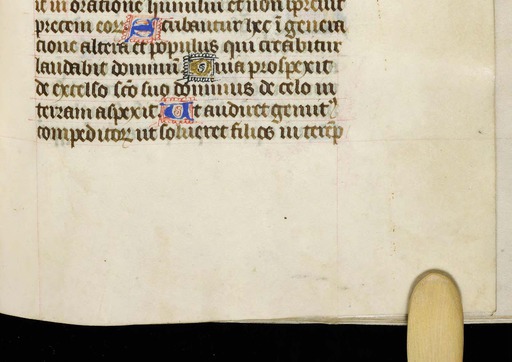 it in orationē humiliū et non spreuit
precem eorꝝ Scribantur hec ī genera
cione altera et populus qui creabitur
laudabit dominū Quia prospexit
de excelso sc̄o suo dominus de celo in
terram aspexit Ut audiret gemit᷒
compeditorꝝ ut solueret filios intērep̄